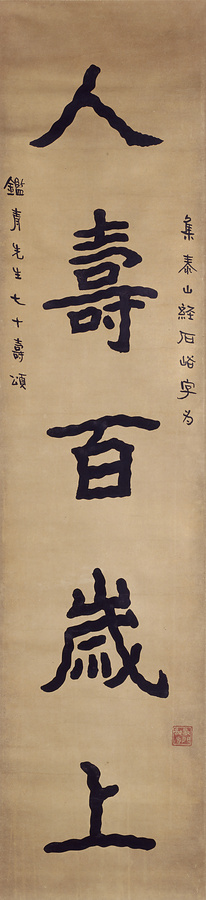 集泰山经石峪字为
人壽百歲上
鑑青先生七十壽頌